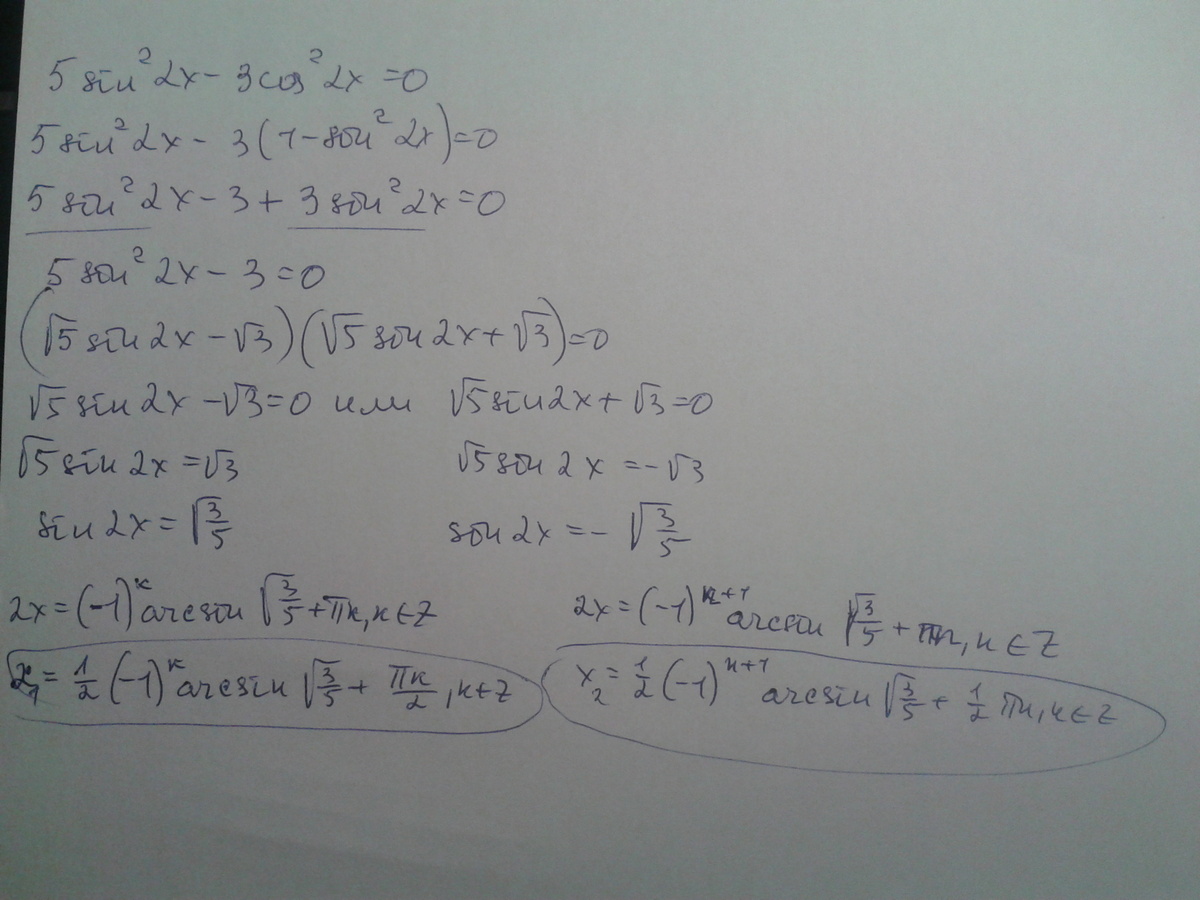 5 sin² 2x − 3 cos² 2x = 0
5 sin² 2x − 3(1 − sin² 2x) = 0
5 sin² 2x − 3 + 3 sin² 2x = 0
5 sin² 2x − 3 = 0
(√5 sin 2x − √3)(√5 sin 2x + √3) = 0
√5 sin 2x − √3 = 0 или √5 sin 2x + √3 = 0
√5 sin 2x = √3 √5 sin 2x = −√3
sin 2x = √(3/5) sin 2x = −√(3/5)
2x = (−1)^k arcsin √(3/5) + πk, k ∈ Z 2x = (−1)^(k+1) arcsin √(3/5) + πk, k ∈ Z
x₁ = 1/2 (−1)^k arcsin √(3/5) + πk/2, k ∈ Z x₂ = 1/2 (−1)^(k+1) arcsin √(3/5) + 1/2 πk, k ∈ Z